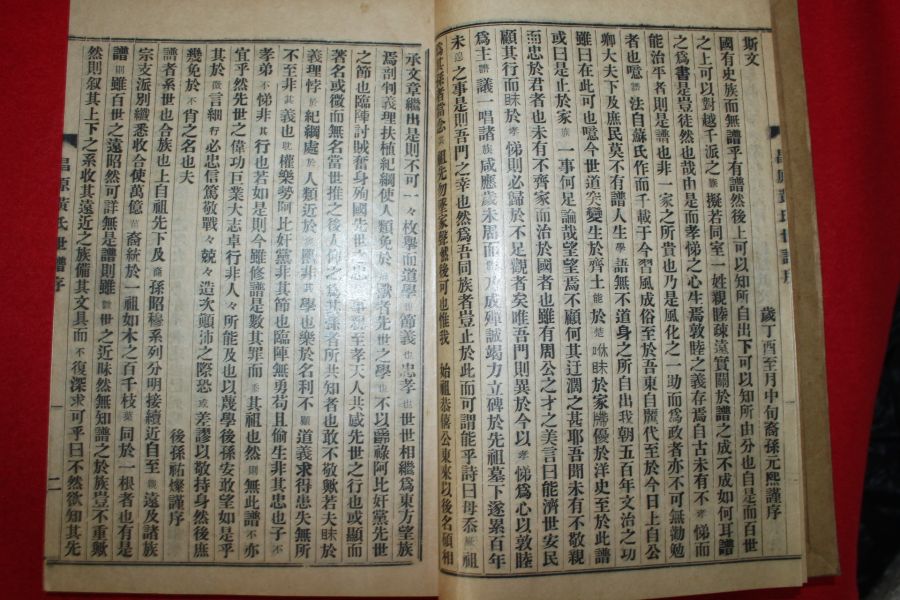 歲丁酉至月中旬裔孫元熙謹序
斯文
國有史族而無譜乎有譜然後上可以知所自出下可以知所由分也自是而百世
之上可以對越千派之族擬若同室一姓親睦疎遠實關於譜之成不成如何耳譜
之為書是豈徒然也哉由是而孝悌之心生焉敦睦之義存焉自古未有不孝悌而
能治平者則是譜也非一家之所貴也乃是風化之一助而為政者亦不可無勸勉
者也噫譜法自蘇氏作而千載于今習風成俗至於吾東自麗代至於今日上自公
卿大夫下及庶民莫不有譜人生學語無不道身之所自出我朝五百年文治之功
雖曰在此可也噫今世道突變生於齊土能於楚休昧於家牒優於洋史至於此譜
或曰是止於家族一事何足論哉望望焉不顧何其迂濶之甚耶吾聞未有不敬親
而忠於君者也未有不齊家而治於國者也雖有周公之才之美言曰能濟世安民
顧其行而昧於孝悌則必歸於不足觀者矣唯吾門則異於今以孝悌為心以敦睦
為主譜議一唱諸族咸應歲未周而乃成殫誠竭力立碑於先祖墓下遂累百年
未之事是則吾門之幸也然為吾同族者豈止於此而可謂能乎詩曰毋忝厥祖
為其孫者當念祖先勿墜家聲然後可也惟我始祖恭僖公東來以後名顯相
承文章繼出是則不可一々枚舉而道學節義也忠孝也世世相繼為東方望族
焉剖判義理扶植紀綱使人類免於者先世之學也不以爵祿阿比奸黨先世
之節也臨陣討賊奮身殉國先世之忠也事親至孝天人共感先世之行也或顯而
著名或微而無名當世推之後人仰之為其孫者所共知者也敢不敬歟若夫昧於
義理悖於紀綱處於人類近於非其學也樂於名利不顧道義求得患失無所
不至非其義也耽權樂勢阿比奸黨非其節也臨陣無勇苟且偷生非其忠也子不
孝弟不悌非其行也若如是則今雖修譜是數其罪而忝其祖也然則無此譜亦
宜乎然先世之偉功巨業大志卓行非人々所能及也以蔑學後孫安敢望如是乎
其於微言細行必忠信篤敬戰々兢々造次顛沛之際恐或差謬以敬持身然後庶
幾免於不肖之名也夫
後孫祐燦謹序
譜者系世也合族也上自祖先下及裔孫昭穆系列分明接續近自至遠及諸族
宗支派別纖悉收合使萬億苗裔統於一祖如木之百千枝葉同於一根者也有是
譜則雖百世之遠昭然可詳無是譜則雖之近昧然無知譜之於族豈不重歟
然則叙其上下之系收其遠近之族備其文具而不復深求可乎曰不然欲知其先
昌原黃氏世譜序
二